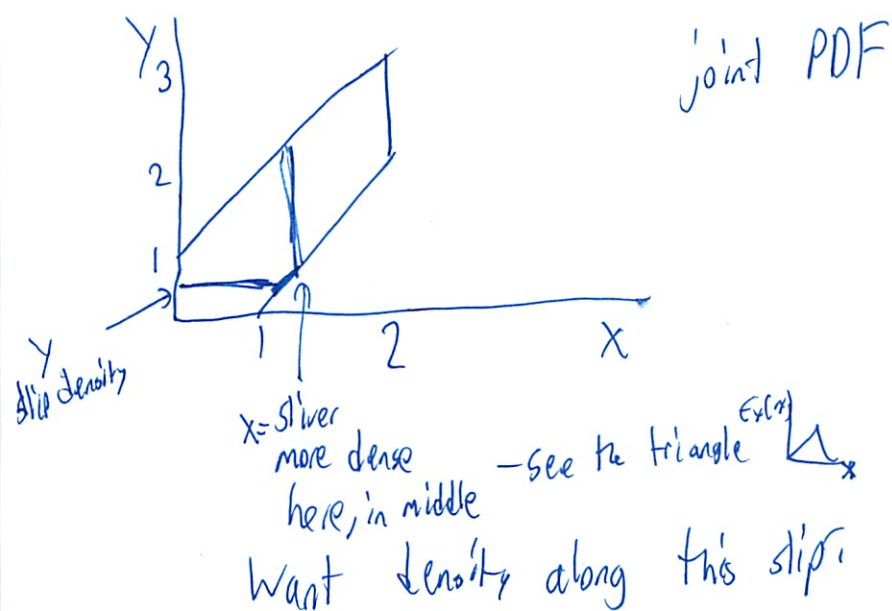 joint PDF
Y
3
2
1
1 2 X
Y
slip density
X= Sliver
more dense
here, in middle
- see the triangle
x
Want density along this slip.